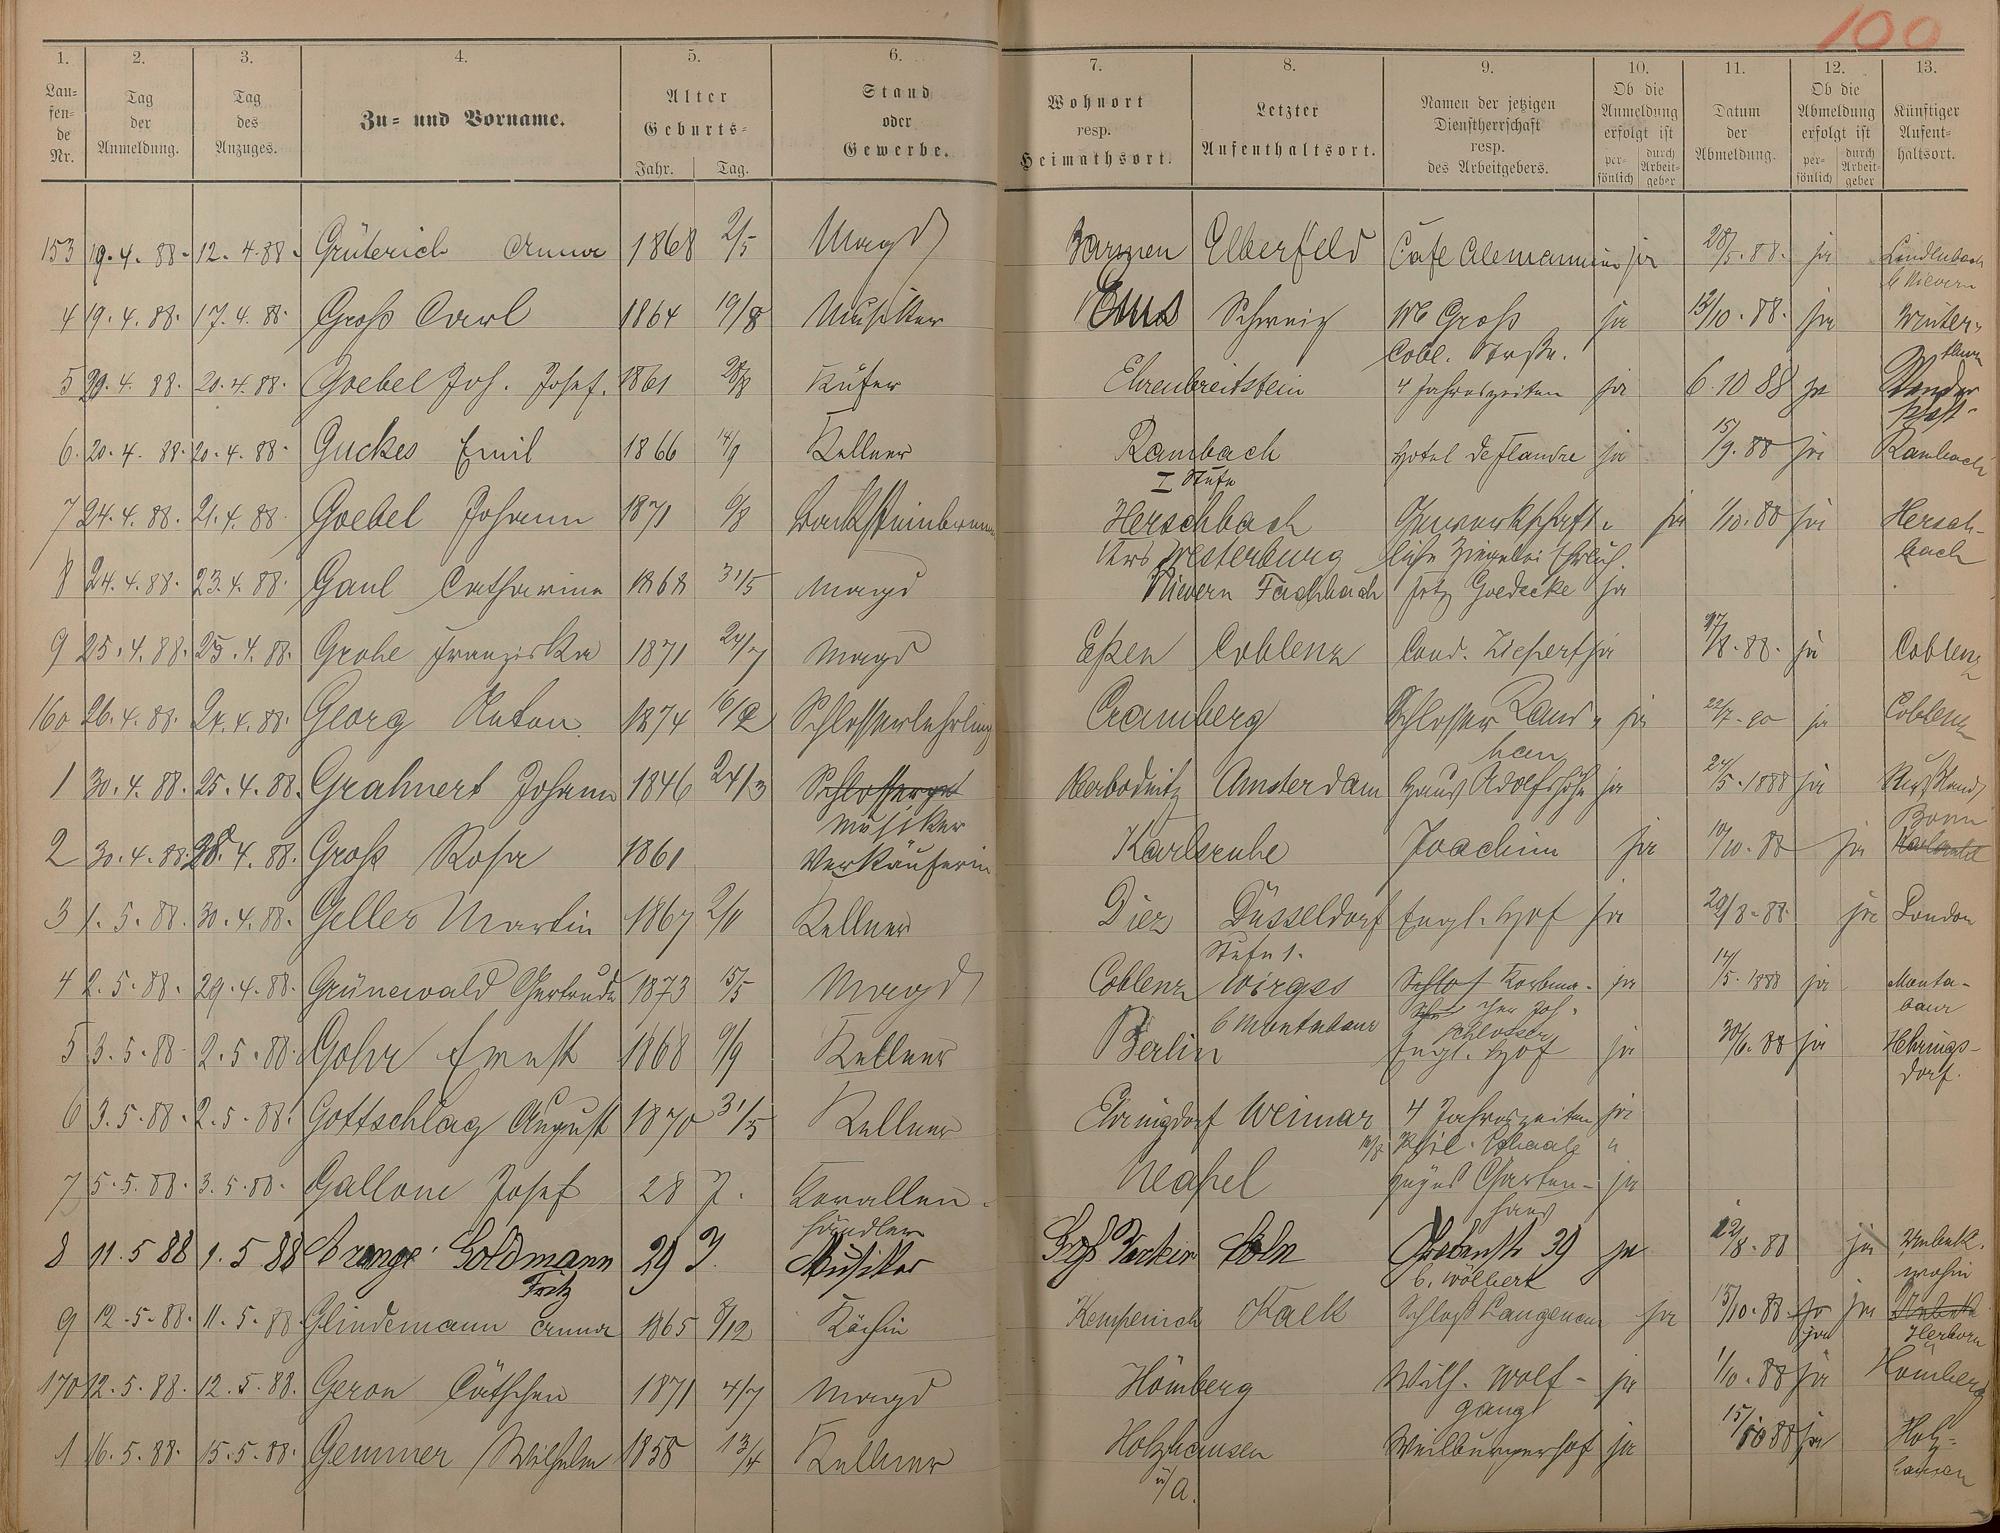 100
1. 2. 3. 4. 5. 6. 7. 8. 9. 10. 11. 12. 13.
Lau-
fen-
de
Nr.
Tag
der
Anmeldung.
Tag
des
Anzuges.
Zu- und Vorname.
Alter
Geburts-
Jahr. Tag.
Stand
oder
Gewerbe.
Wohnort
resp.
Heimathsort.
Letzter
Aufenthaltsort.
Namen der jetzigen
Dienstherrschaft
resp.
des Arbeitgebers.
Ob die
Anmeldung
erfolgt ist
per-
sönlich
durch
Arbeit-
geber
Datum
der
Abmeldung.
Ob die
Abmeldung
erfolgt ist
per-
sönlich
durch
Arbeit-
geber
Künftiger
Aufent-
haltsort.
153 19.4.88. 12.4.88. Grüterich Anna 1868 2/5 Magd Barmen Elberfeld Café Alemannia ja 28/5.88. ja Lindenbach
b Nievern
4 19.4.88. 17.4.88. Groß Carl 1864 19/8 Musiker Ems Schweiz Ww Groß ja 12/10.88. ja Winter-
Cobl. Straße. thur
5 20.4.88. 20.4.88. Goebel Joh. Josef. 1861 Küfer Ehrenbreitstein 4 Jahreszeiten ja 6.10 88 ja Wander
schaft.
6. 20.4.88. 20.4.88. Guckes Emil 1866 14/9 Kellner Rambach Hotel de Flandre ja 15/9.88 ja Rambach
I Stufe
7 24.4.88. 21.4.88. Goebel Johann 1871 6/8 Backsteinbrenner Herschbach Gewerkschaft- ja 1/10.88 ja Hersch-
Krs Westerburg liche Ziegelei Ehrlich. bach
8 24.4.88. 23.4.88. Gaul Catharina 1868 31/5 Magd Nievern Fachbach Goedecke ja
9 25.4.88. 25.4.88. Grohe Franziska 1871 24/7 Magd Eßen Coblenz Cond. ja 27/8.88. ja Coblenz
160 26.4.88. 24.4.88. Georg Anton 1874 Schlosserlehrling Cramberg Schlosser Land- ja 22/7.90 ja Coblenz
1 30.4.88. 25.4.88. Grahnert Johann 1846 24/3 Schlosser Amsterdam Haus Adolfshöhe ja 24/5.1888 ja Rußland
Musiker Bonn
2 30.4.88. 28.4.88. Groß Rosa 1861 Verkäuferin Karlsruhe Joachim ja 10/10.88 ja Karlsruhe
3 1.5.88. 30.4.88. Geller Martin 1867 2/11 Kellner Diez Düsseldorf Engl. Hof ja 29/8.88. ja London
Stufe 1.
4 2.5.88. 29.4.88. Grünewald Gertrude 1873 15/5 Magd Coblenz Wirges Korbma- ja 14/5.1888 ja Monta-
b Montabaur cher Joh. baur
Schlosser
5 3.5.88 2.5.88. Gohr Ernst 1868 9/9 Kellner Berlin Engl. Hof ja 30/6.88 ja Hehrings-
dorf.
6 3.5.88. 2.5.88. Gottschlag August 1870 31/5 Kellner Ehringdorf Weimar 4 Jahreszeiten ja
Schaale "
7 5.5.88. 3.5.88. Gallone Josef 28 J. Korallen- Neapel Garten- ja
händler haus
8 11.5 88 1.5 88 Goldmann 29 J. Musiker Cöln Grabenstr 39 ja 22/8.88 ja Unbek.
Fritz b. Wölbert wohin
9 12.5.88. 11.5.88 Glindemann Anna 1865 8/12 Köchin Kempenich Kalk Schloß Langenau ja 15/10.88 ja ja
Herborn
170 12.5.88. 12.5.88. Geron Käthchen 1871 4/7 Magd Hömberg Wilh. Wolf- ja 1/10.88 ja Hömberg
gang
1 16.5.88. 15.5.88. Gemmer Wilhelm 1858 13/4 Kellner Holzhausen Weilburgerhof ja 15/10 88 ja Holz-
ü/A. hausen